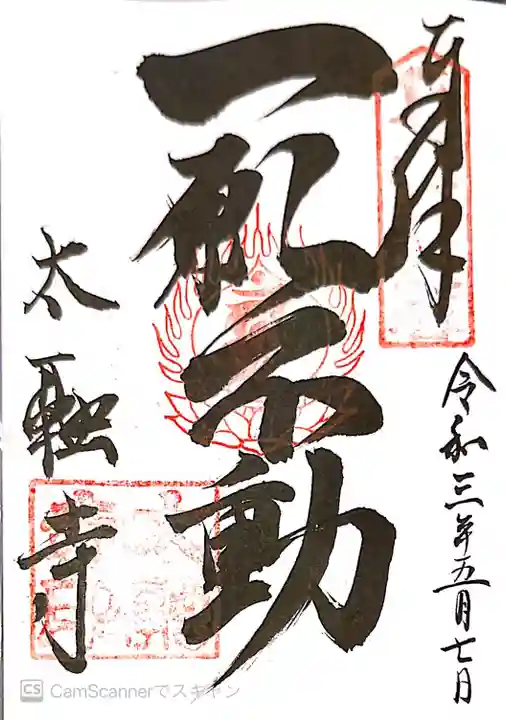 奉拝
令和三年五月七日
一願不動
太融寺
CamScannerでスキャン